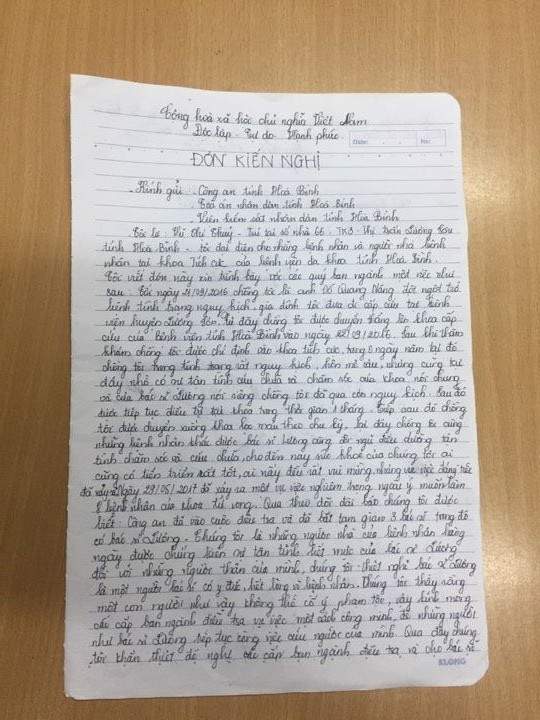 Cộng hoà xã hội chủ nghĩa Việt Nam
Độc lập - Tự do - Hạnh phúc
Date: No:
ĐƠN KIẾN NGHỊ
- Kính gửi: - Công an tỉnh Hoà Bình
- Toà án nhân dân tỉnh Hoà Bình
- Viện kiểm sát nhân dân tỉnh Hoà Bình
Tôi là: Thị Thuỷ - Trú tại số nhà 66 - TK3 - Thị trấn Lương Sơn
tỉnh Hoà Bình - tôi đại diện cho những bệnh nhân và người nhà bệnh
nhân tại khoa Tích cực của bệnh viện đa khoa tỉnh Hoà Bình.
Tôi viết đơn này xin trình bày với các quý ban ngành một việc như
sau: Vào ngày 21/09/2016 chồng tôi là anh Đỗ Quang Năng đột ngột trở
bệnh tình trạng nguy kịch, gia đình tôi đưa đi cấp cứu tại bệnh
viện huyện Lương Sơn, từ đây chồng tôi được chuyển thẳng lên khoa cấp
cứu của bệnh viện tỉnh Hoà Bình vào ngày /09/2016. Sau khi thăm
khám chồng tôi được chỉ định vào khoa tích cực, trong ngày nằm tại đó
chồng tôi trong tình trạng rất nguy kịch, hôn mê sâu, nhưng cũng tại
đây nhờ có sự tận tình cứu chữa và chăm sóc của khoa nói chung
và của bác sĩ Lương nói riêng chồng tôi đã qua cơn nguy kịch. Sau đó
được tiếp tục điều trị tại khoa trong thời gian 1 tháng. Tiếp sau đó chồng
tôi được chuyển xuống khoa lọc máu theo chu kỳ, tại đây chồng tôi cùng
những bệnh nhân khác được bác sĩ Lương cùng đội ngũ điều dưỡng tận
tình chăm sóc và cứu chữa, cho đến nay sức khoẻ của chồng tôi ai
cũng có tiến triển rất tốt, ai nấy đều rất vui mừng nhưng với việc đáng tiếc
đã xảy ra ngày 29/05/2017 đã xảy ra một vụ việc nghiêm trọng ngoài ý muốn làm
bệnh nhân của khoa tử vong. Qua theo dõi đài báo chúng tôi được
biết: Công an đã vào cuộc điều tra và đã bắt tạm giam 3 bác sĩ trong đó
có bác sĩ Lương. Chúng tôi là những người nhà của bệnh nhân hàng
ngày được chứng kiến sự tận tình hết mực của bác sĩ Lương
đối với những người thân của mình, chúng tôi thiết nghĩ bác sĩ Lương
là một người bác sĩ có y đức, hết lòng vì bệnh nhân. Chúng tôi thấy rằng
một con người như vậy không thể cố ý phạm tội, vậy kính mong
các cấp ban ngành điều tra vụ việc một cách công minh, để những người
như bác sĩ Lương tiếp tục công việc cứu người của mình. Qua đây chúng
tôi khẩn thiết đề nghị các cấp ban ngành điều tra và cho bác sĩ
KLONG